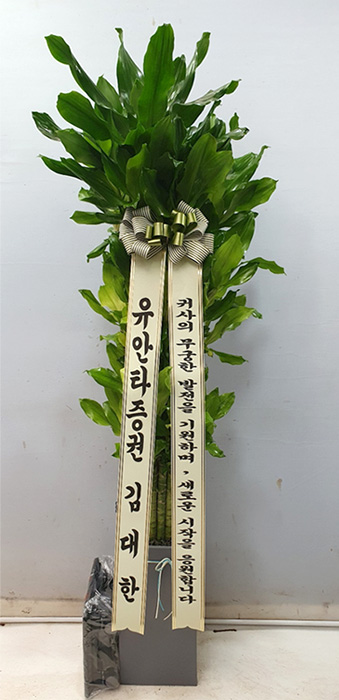 유안타증권 김대한
귀사의 무궁한 발전을 기원하며, 새로운 시작을 응원합니다